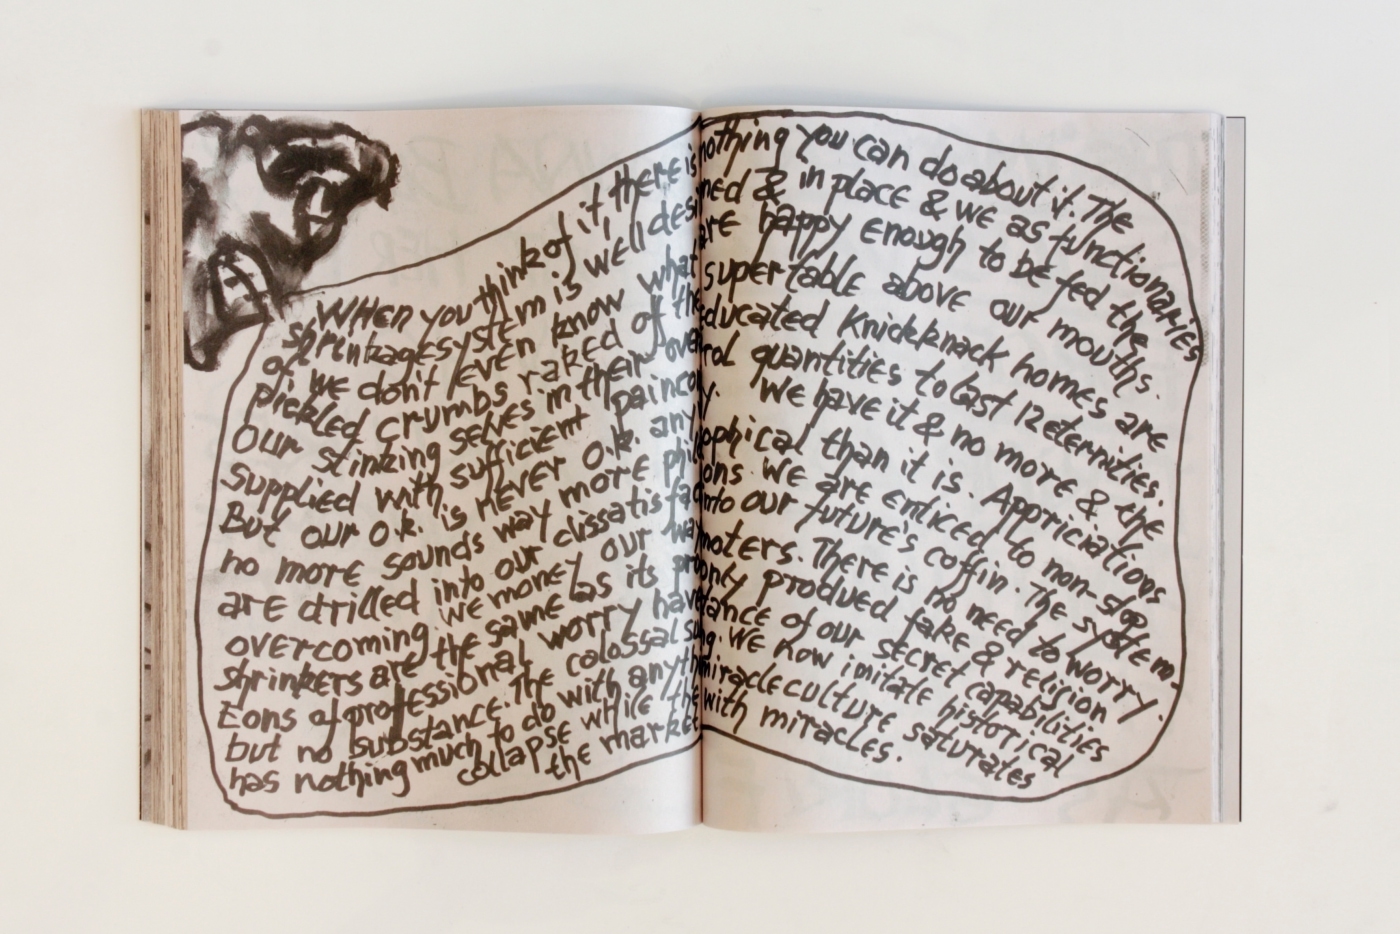 WHEN you think of it, there is nothing you can do about it. The
shrinkage system is well designed & in place & we as functionaries
of we don't even know what are happy enough to be fed the
pickled crumbs raked of the supertable above our mouths.
Our stinking selves in their overeducated Knickknack homes are
supplied with sufficient paincontrol quantities to last 12 eternities.
But our o.k. is never o.k. any We have it & no more & the
no more sounds way more philosophical than it is. Appriciations
are drilled into our dissatisfactions. We are enticed to non-stop
overcoming we money our way into our future's coffin. The system-
shrinkers are the same as its promoters. There is no need to worry.
Eons of professional worry have only produed fake & religion
but no substance. The colossal substance of our secret capabilities
has nothing much to do with anything. We now imitate historical
collapse while the miracle culture saturates
the market with miracles.